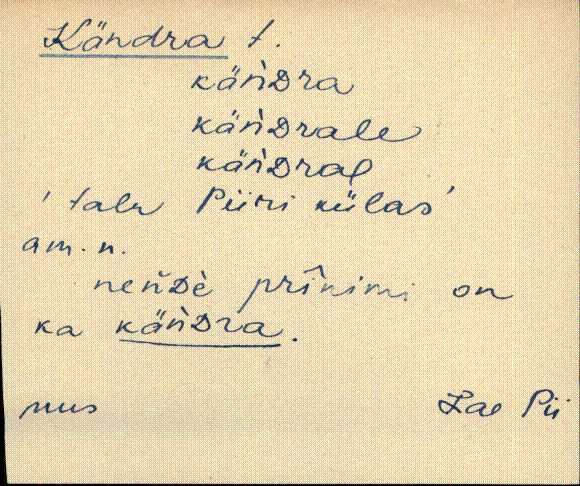 Kändra t.
käǹᴅra
käǹᴅrale
käǹᴅral
'talu Piiri külas'
am. n.
neňᴅè prînimi on
ka käǹᴅra.
mus Lae Pii